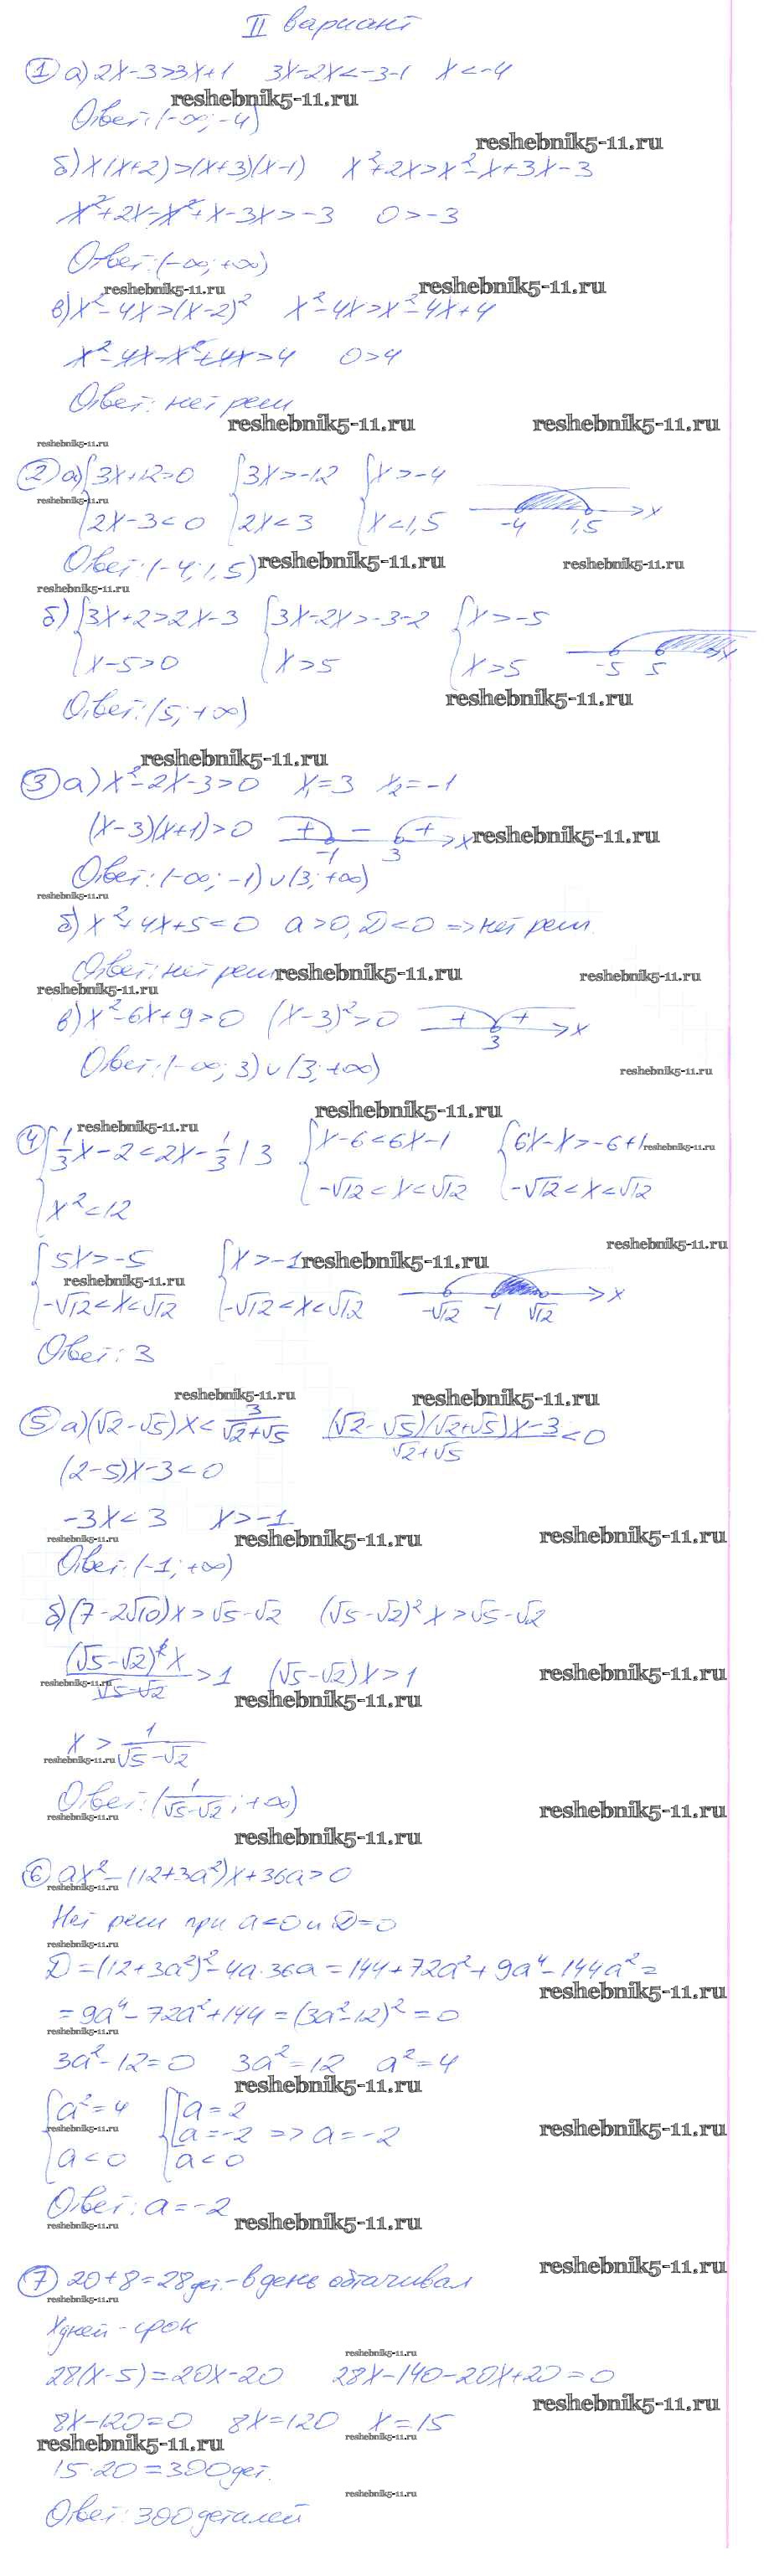 II вариант
① а) 2x-3>3x+1 3x-2x<-3-1 x<-4
reshebnik5-11.ru
Ответ: (-∞; -4)
reshebnik5-11.ru
б) x(x+2)>(x+3)(x-1) x²+2x>x²-x+3x-3
x²+2x-x²+x-3x>-3 0>-3
Ответ: (-∞; +∞)
reshebnik5-11.ru reshebnik5-11.ru
в) x²-4x>(x-2)² x²-4x>x²-4x+4
x²-4x-x²+4x>4 0>4
Ответ: нет реш
reshebnik5-11.ru reshebnik5-11.ru
reshebnik5-11.ru
② а) {3x+12>0 {3x>-12 {x>-4
reshebnik5-11.ru
{2x-3<0 {2x<3 {x<1,5 -4 1,5 x
Ответ: (-4; 1,5) reshebnik5-11.ru reshebnik5-11.ru
reshebnik5-11.ru
б) {3x+2>2x-3 {3x-2x>-3-2 {x>-5
{x-5>0 {x>5 {x>5 -5 5 x
reshebnik5-11.ru
Ответ: (5; +∞)
reshebnik5-11.ru
③ а) x²-2x-3>0 x₁=3 x₂=-1
(x-3)(x+1)>0 + - + -1 3 x reshebnik5-11.ru
Ответ: (-∞; -1)∪(3; +∞)
reshebnik5-11.ru
б) x²+4x+5<0 a>0, D<0 => нет реш.
Ответ: нет реш reshebnik5-11.ru reshebnik5-11.ru
reshebnik5-11.ru
в) x²-6x+9>0 (x-3)²>0 + + 3 x
Ответ: (-∞; 3)∪(3; +∞) reshebnik5-11.ru
reshebnik5-11.ru
reshebnik5-11.ru
④ {1/3x-2<2x-1/3 |·3 {x-6<6x-1 {6x-x>-6+1 reshebnik5-11.ru
{x²<12 {-√12<x<√12 {-√12<x<√12
reshebnik5-11.ru
{5x>-5 {x>-1 reshebnik5-11.ru
reshebnik5-11.ru
{-√12<x<√12 {-√12<x<√12 -√12 -1 √12 x
Ответ: 3
reshebnik5-11.ru reshebnik5-11.ru
⑤ а) (√2-√5)x<3/(√2+√5) ((√2-√5)(√2+√5)x-3)/(√2+√5)<0
(2-5)x-3<0
-3x<3 x>-1
reshebnik5-11.ru reshebnik5-11.ru reshebnik5-11.ru
Ответ: (-1; +∞)
б) (7-2√10)x>√5-√2 (√5-√2)²x>√5-√2
(√5-√2)²x/(√5-√2)>1 (√5-√2)x>1 reshebnik5-11.ru
reshebnik5-11.ru reshebnik5-11.ru
x>1/(√5-√2)
reshebnik5-11.ru
Ответ: (1/(√5-√2); +∞) reshebnik5-11.ru
reshebnik5-11.ru
reshebnik5-11.ru
⑥ ax²-(12+3a²)x+36a>0
reshebnik5-11.ru
Нет реш при a<0 и D=0
reshebnik5-11.ru
D=(12+3a²)²-4a·36a=144+72a²+9a⁴-144a²=
reshebnik5-11.ru
=9a⁴-72a²+144=(3a²-12)²=0
reshebnik5-11.ru
3a²-12=0 3a²=12 a²=4
reshebnik5-11.ru
{a²=4 {[a=2
reshebnik5-11.ru [a=-2 => a=-2 reshebnik5-11.ru
{a<0 {a<0
Ответ: a=-2
reshebnik5-11.ru reshebnik5-11.ru
reshebnik5-11.ru
⑦ 20+8=28 дет.-в день обтачивал
reshebnik5-11.ru
x дней - срок
reshebnik5-11.ru
28(x-5)=20x-20 28x-140-20x+20=0
reshebnik5-11.ru
8x-120=0 8x=120 x=15
reshebnik5-11.ru reshebnik5-11.ru
15·20=300 дет.
reshebnik5-11.ru
Ответ: 300 деталей